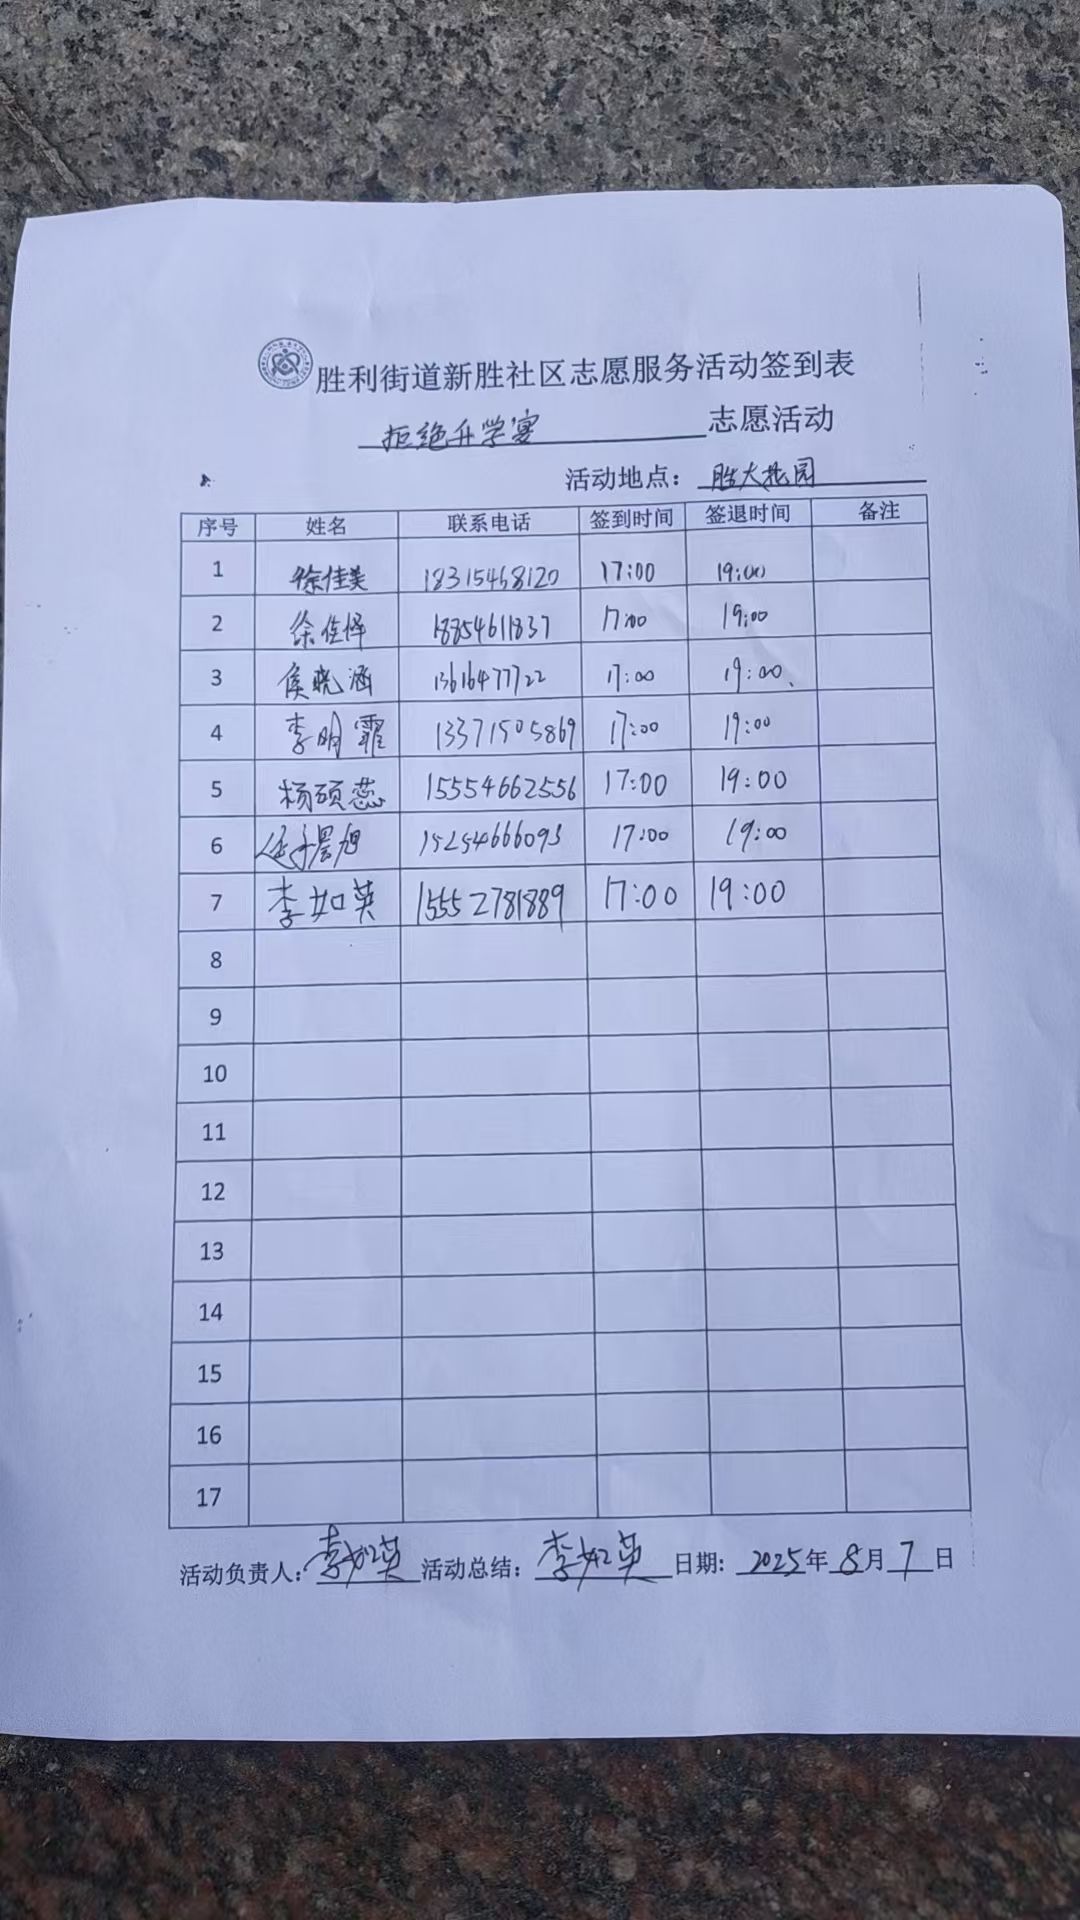 胜利街道新胜社区志愿服务活动签到表
拒绝升学宴 志愿活动
活动地点: 胜大花园
序号 姓名 联系电话 签到时间 签退时间 备注
1 徐佳美 18315468120 17:00 19:00
2 徐佳怿 18854611837 17:00 19:00
3 侯晓涵 13616477722 17:00 19:00
4 李明霏 13371505869 17:00 19:00
5 杨硕蕊 15554662556 17:00 19:00
6 任子晨旭 15254666093 17:00 19:00
7 李如英 15552781889 17:00 19:00
8
9
10
11
12
13
14
15
16
17
活动负责人: 李如英 活动总结: 李如英 日期: 2025年8月7日